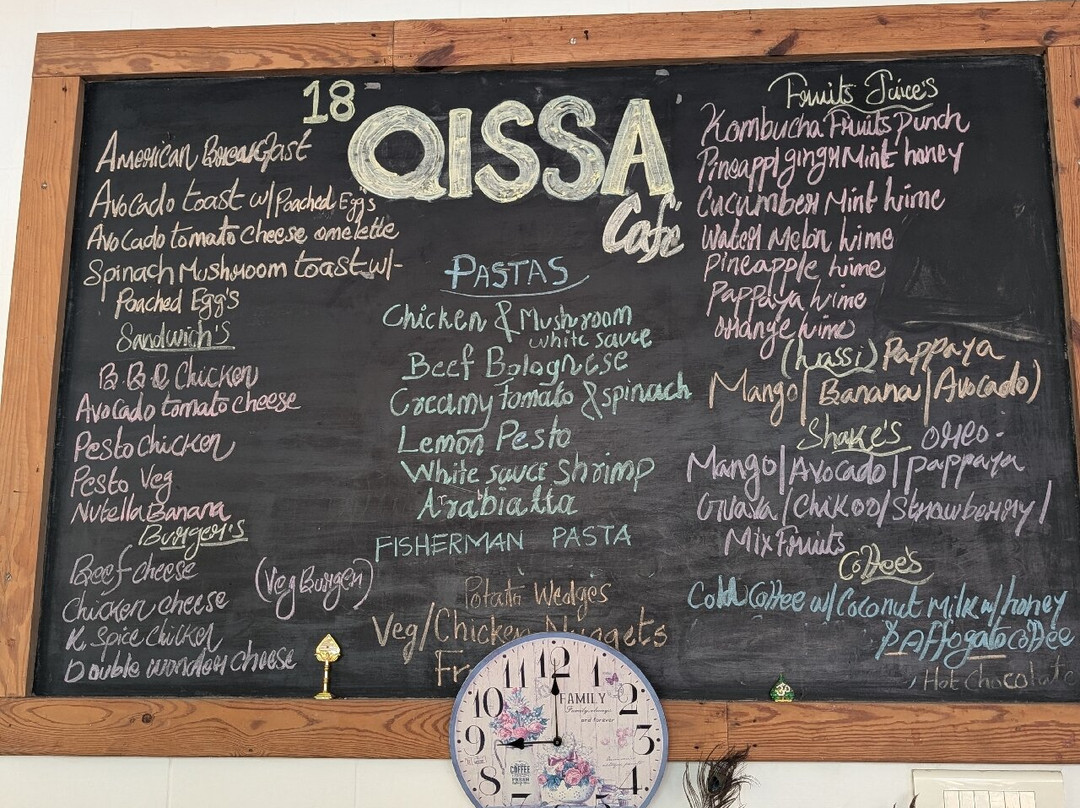 18 QISSA
Cafe
American Breakfast
Avocado toast w/ Poached Egg's
Avocado tomato cheese omelette
Spinach Mushroom toast w/-
Poached Egg's
Sandwich's
B.B.Q Chicken
Avocado tomato cheese
Pesto chicken
Pesto Veg
Nutella Banana
Burger's
Beef cheese
(Veg Burger)
Chicken cheese
K. Spice chicken
Double wonder cheese
PASTAS
Chicken & Mushroom
white sauce
Beef Bolagnese
Creamy tomato & spinach
Lemon Pesto
White sauce shrimp
Arabiatta
FISHERMAN PASTA
Potato Wedges
Veg/Chicken Nuggets
Fr
Fruits Juice's
Kombucha Fruits Punch
Pineappl gingr Mint honey
Cucumber Mint Lime
Water Melon Lime
Pineapple Lime
Pappaya Lime
orange Lime
(Lassi) Pappaya
Mango/ Banana/Avocado)
Shake's oreo-
Mango/Avocado/pappaya
Guava/Chikoo/Strawberry/
Mix Fruits
Coffee's
Cold Coffee w/Coconut Milk w/honey
Affogato coffee
Hot Chocolate
10 11 12 1 2
9 3
8
FAMILY
Family, always
and forever
COFFEE
FRESH